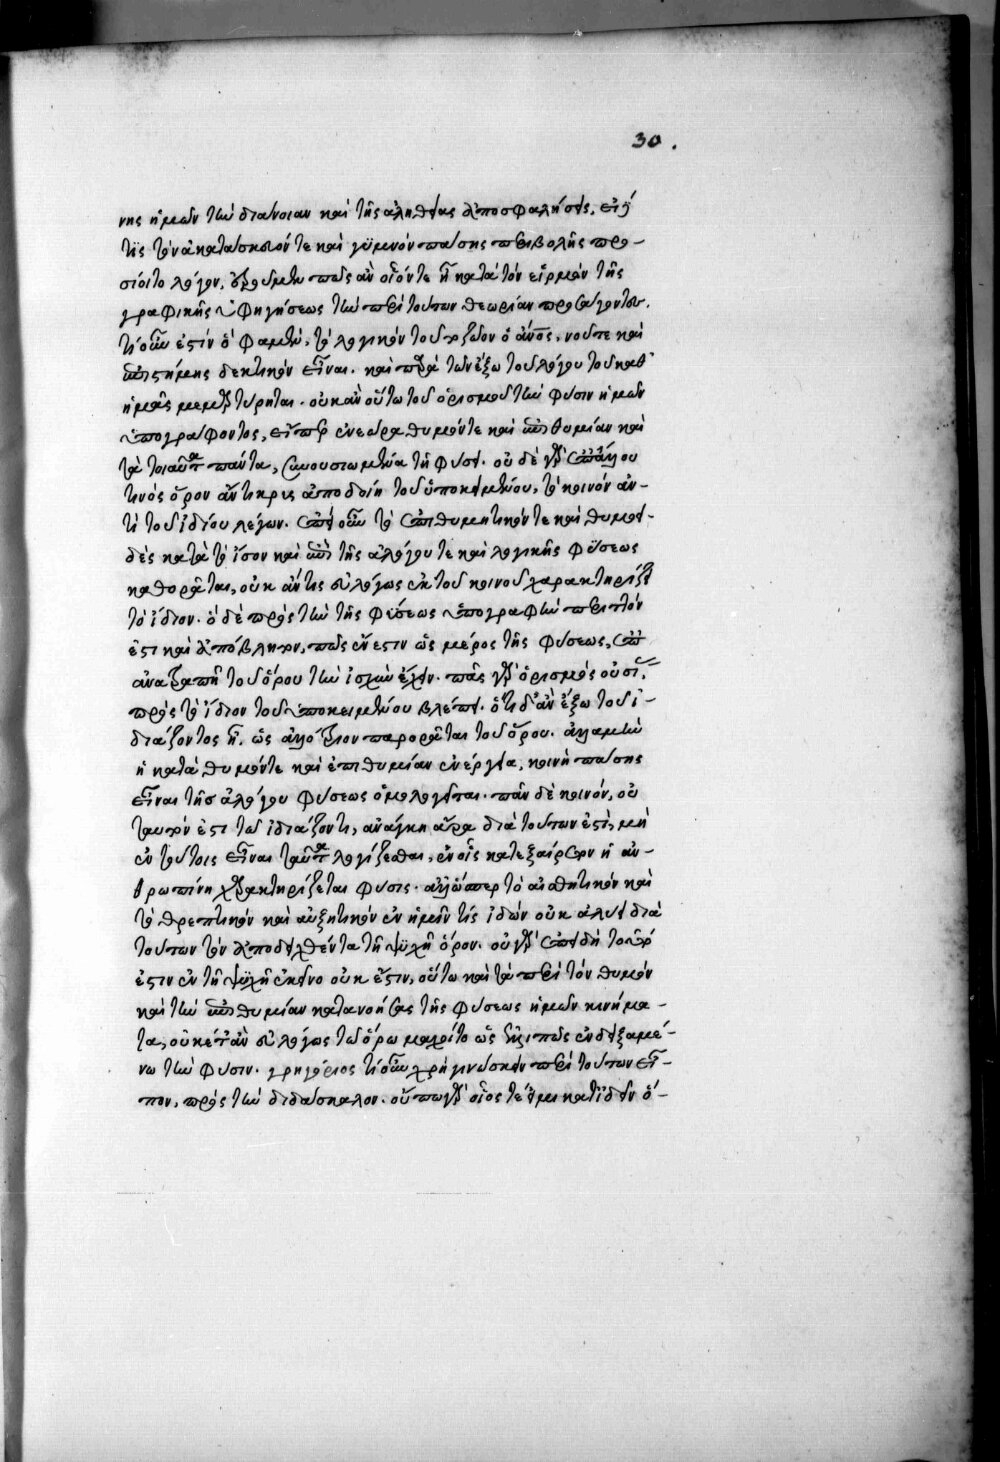 30.
νης ἡμῶν τὴν διάνοιαν καὶ τῆς ἀληθείας ἀποσφαλήσεις. εἰ δέ
τις τὸν ἀκατάσκευόν τε καὶ γυμνὸν πάσης περιβολῆς προ-
σίοιτο λόγον, ἐροῦμεν πῶς ἂν οἷόν τε ᾖ κατὰ τὸν εἱρμὸν τῆς
γραφικῆς ὑφηγήσεως τὴν περὶ τούτων θεωρίαν προσάγοντες.
τί οὖν ἐστίν ὅ φαμεν, τὸ λογικὸν τοῦτο ζῶον ὁ ἄνθρωπος, νοῦ τε καὶ
ἐπιστήμης δεκτικὸν εἶναι. καὶ παρὰ τῶν ἔξω τοῦ λόγου τοῦ καθ'
ἡμᾶς μεμαρτύρηται. οὐκ ἂν οὕτω τοῦ ὁρισμοῦ τὴν φύσιν ἡμῶν
ὑπογράφοντος, εἴπερ ἐνεώρα θυμόν τε καὶ ἐπιθυμίαν καὶ
τὰ τοιαῦτα πάντα, συνουσιωμένα τῇ φύσει. οὐδὲ γὰρ ἐπ' ἄλλου
τινὸς ὅρον ἄν τις ἀποδοίη τοῦ ὑποκειμένου, τὸ κοινὸν ἀν-
τὶ τοῦ ἰδίου λέγων. ἐπεὶ οὖν τὸ ἐπιθυμητικόν τε καὶ θυμοει-
δὲς κατὰ τὸ ἴσον καὶ ἐπὶ τῆς ἀλόγου τε καὶ λογικῆς φύσεως
καθορᾶται, οὐκ ἄν τις εὐλόγως ἐκ τοῦ κοινοῦ χαρακτηρίζει
τὸ ἴδιον. ὃ δὲ πρὸς τὴν τῆς φύσεως ὑπογραφὴν περιττόν
ἐστι καὶ ἀπόβλητον, πῶς ἔνεστιν ὡς μέρος τῆς φύσεως, ἐπ'
ἀνατροπῇ τοῦ ὅρου τὴν ἰσχὺν ἔχειν. πᾶς γὰρ ὁρισμὸς οὐσίας,
πρὸς τὸ ἴδιον τοῦ ὑποκειμένου βλέπει. ὅ τι δ' ἂν ἔξω τοῦ ἰ-
διάζοντος ᾖ, ὡς ἀλλότριον παρορᾶται τοῦ ὅρου. ἀλλὰ μὴν
ἡ κατὰ θυμόν τε καὶ ἐπιθυμίαν ἐνέργεια, κοινὴ πάσης
εἶναι τῆς ἀλόγου φύσεως ὁμολογεῖται. πᾶν δὲ κοινόν, οὐ
ταυτόν ἐστι τῷ ἰδιάζοντι, ἀνάγκη ἄρα διὰ τούτων ἐστὶ, μὴ
ἐν τούτοις εἶναι ταῦτα λογίζεσθαι, ἐν οἷς κατεξαίρετον ἡ ἀν-
θρωπίνη χαρακτηρίζεται φύσις. ἀλλ' ὥσπερ τὸ αἰσθητικὸν καὶ
τὸ θρεπτικὸν καὶ αὐξητικὸν ἐν ἡμῖν τις ἰδών οὐκ ἀλύει διὰ
τούτων τὸν ἀποδειχθέντα τῇ ψυχῇ ὅρον. οὐ γὰρ ἐπειδὴ τοῦτό
ἐστιν ἐν τῇ ψυχῇ ἐκεῖνο οὐκ ἔστιν, οὕτω καὶ τὰ περὶ τὸν θυμὸν
καὶ τὴν ἐπιθυμίαν κατανοήσας τῆς φύσεως ἡμῶν κινήμα-
τα, οὐκέτ' ἂν εὐλόγως τῷ ὅρῳ μάχοιτο ὡς ἐλλιπῶς ἐνδειξαμέ-
νῳ τὴν φύσιν. γρηγόριος τί οὖν χρὴ γινώσκειν περὶ τούτων εἶ-
πον, πρὸς τὴν διδάσκαλον. οὔπω γὰρ οἷός τέ εἰμι κατιδεῖν ὅ-